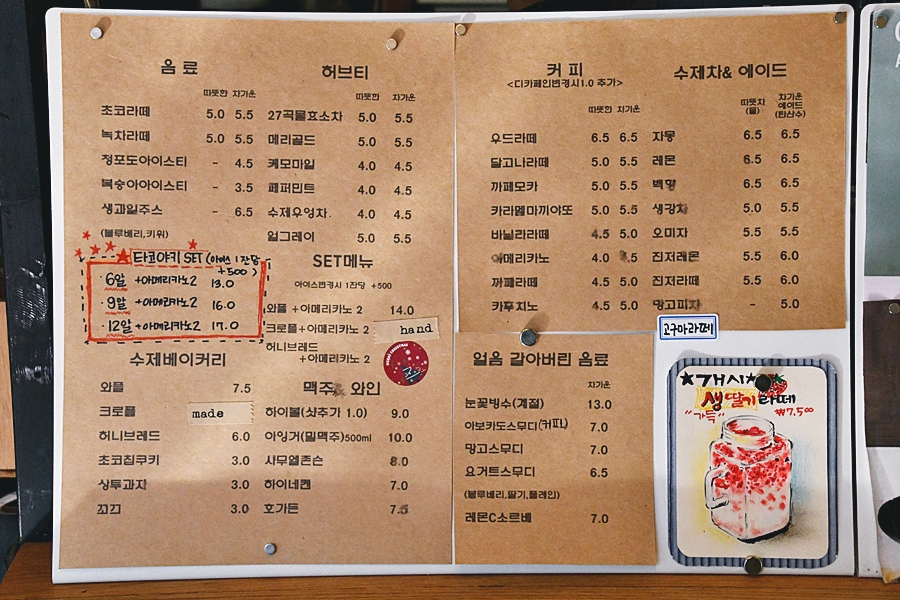 음 료
따뜻한 차가운
초코라떼 5.0 5.5
녹차라떼 5.0 5.5
청포도아이스티 - 4.5
복숭아아이스티 - 3.5
생과일주스 - 6.5
(블루베리,키위)
타코야키 SET (아이스 1잔당 +500)
6알 +아메리카노2 13.0
9알 +아메리카노2 16.0
12알 +아메리카노2 17.0
수제베이커리
와플 7.5
크로플 made
허니브레드 6.0
초코칩쿠키 3.0
상투과자 3.0
꼬끄 3.0
허브티
따뜻한 차가운
27곡물효소차 5.0 5.5
메리골드 5.0 5.5
케모마일 4.0 4.5
페퍼민트 4.0 4.5
수제우엉차. 4.0 4.5
얼그레이 5.0 5.5
SET메뉴
아이스변경시 1잔당 +500
와플 +아메리카노 2 14.0
크로플 +아메리카노 2 hand
허니브레드
+아메리카노 2
맥주& 와인
하이볼(샷추가 1.0) 9.0
아잉거(밀맥주)500ml 10.0
사무엘존슨 8.0
하이네켄 7.0
호가든 7.5
커 피
<디카페인변경시1.0 추가>
따뜻한 차가운
우드라떼 6.5 6.5
달고나라떼 5.0 5.5
까페모카 5.0 5.5
카라멜마끼야또 5.0 5.5
바닐라라떼 4.5 5.0
아메리카노 4.0
까페라떼 4.5 5.0
카푸치노 4.5 5.0
수제차& 에이드
따뜻차 (물) 차가운 에이드 (탄산수)
자몽 6.5 6.5
레몬 6.5 6.5
백향 6.5 6.0
생강차 5.5 5.0
오미자 5.5 5.5
진저레몬 6.0 6.0
진저라떼 6.0 5.5
망고피차 - 5.0
고구마라떼
얼음 갈아버린 음료
차가운
눈꽃빙수(계절) 13.0
아보카도스무디(커피) 7.0
망고스무디 7.0
요거트스무디 6.5
(블루베리,딸기,플레인)
레몬C소르베 7.0
★개시★
생딸기라떼
"가득" ₩7,500